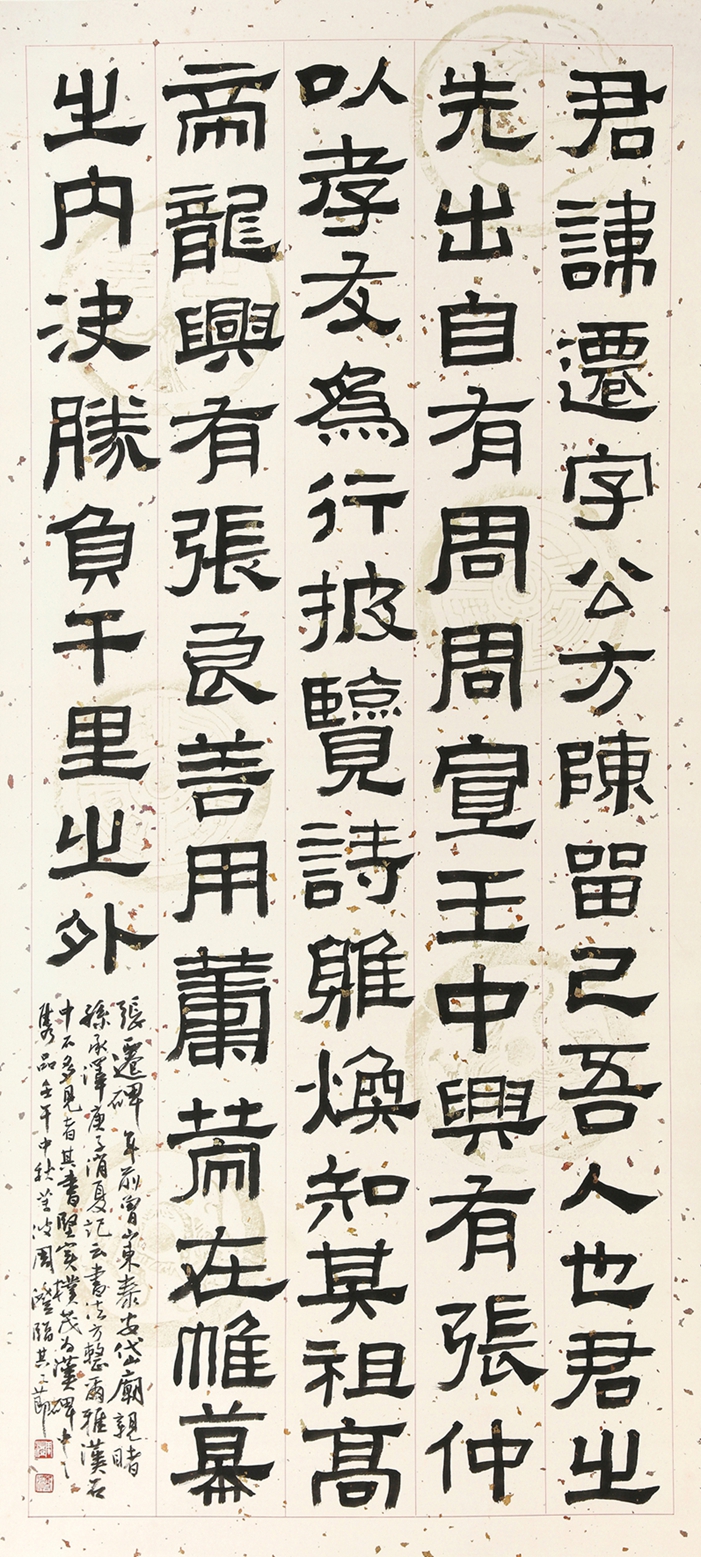 君諱遷字公方陳留己吾人也君之
先出自有周周宣王中興有張仲
以孝友為行披覽詩雅煥知其祖高
帝龍興有張良善用籌策在帷幕
之內決勝負千里之外
張遷碑 年前曾山東泰安岱廟親睹
孫承澤庚子消夏記云書法方整爾雅漢石
中不多見者其書堅實樸茂為漢碑中之
雋品壬午中秋 周 臨其一節